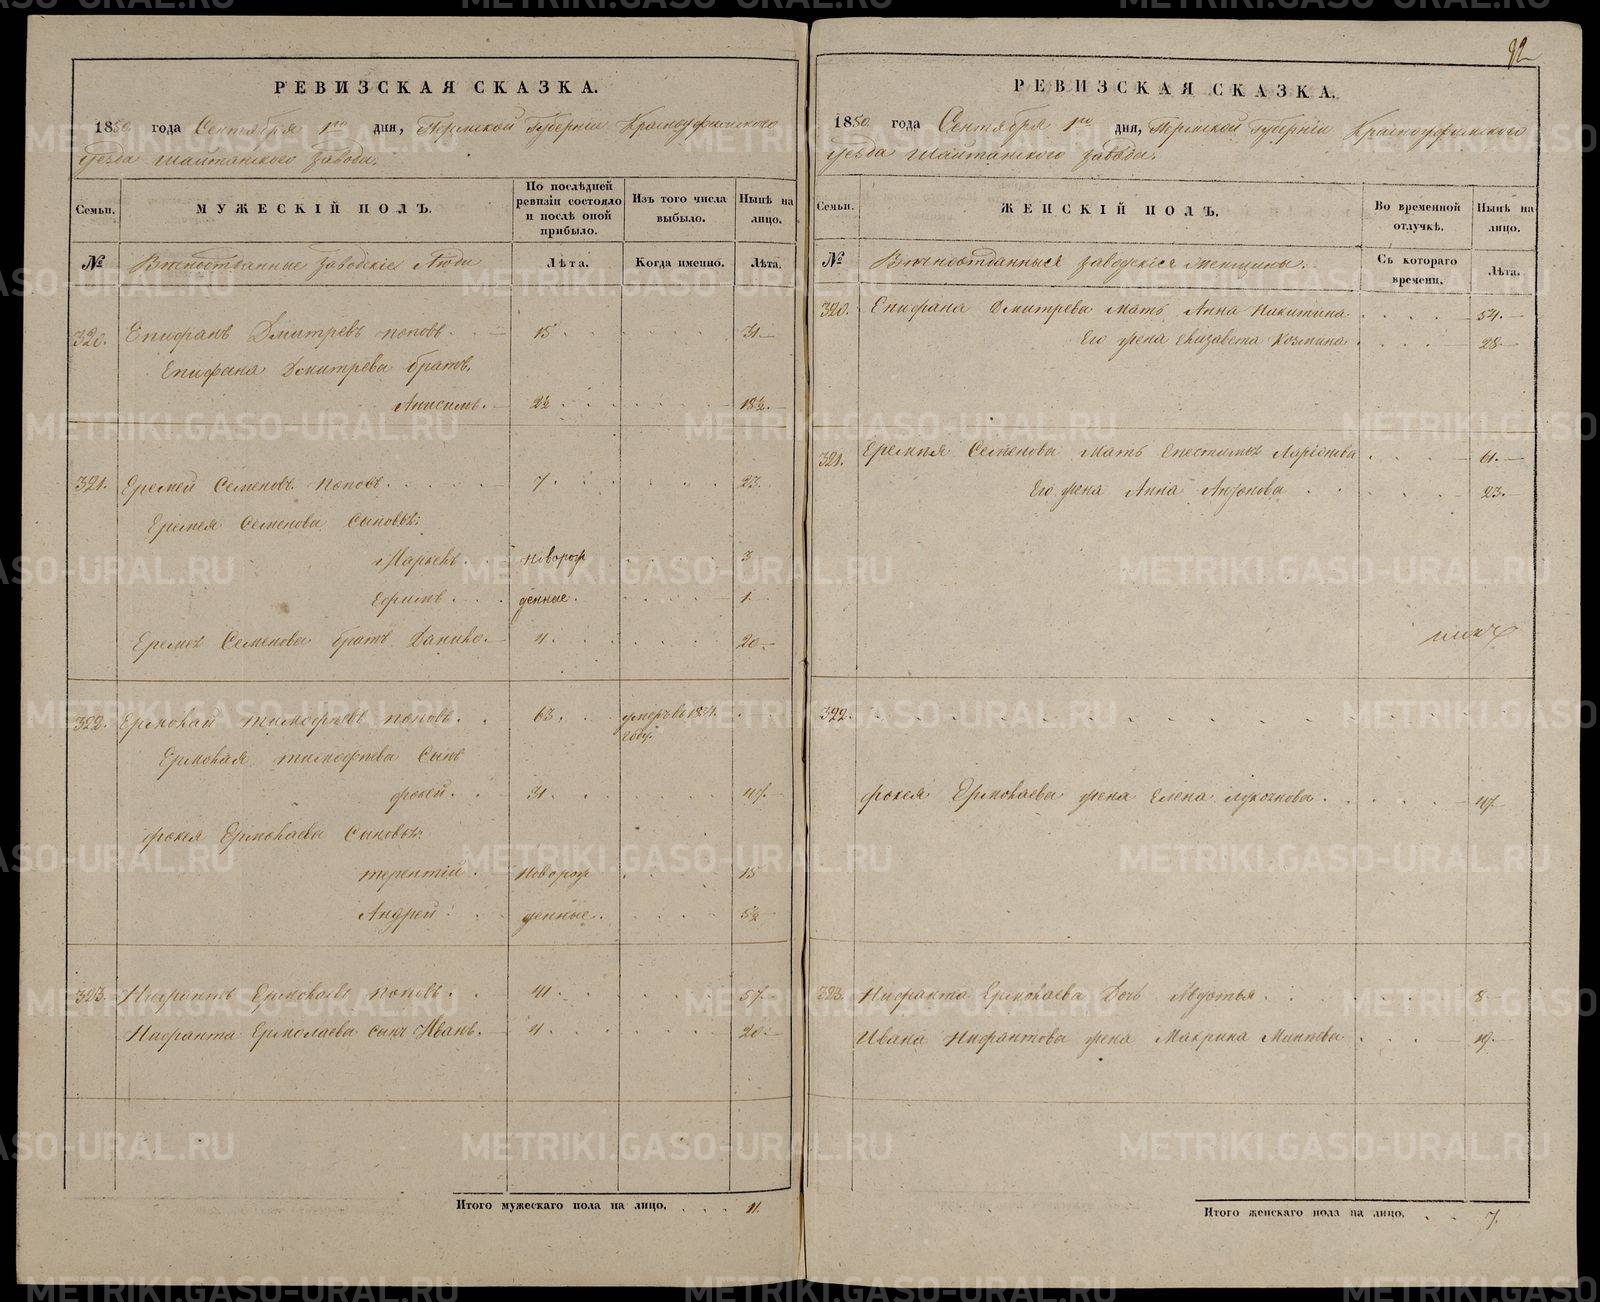 РЕВИЗСКАЯ СКАЗКА.
1850 года Сентября 1го дня, Пермской Губернiи Красноуфимского
уезда Шайтанского завода.
Семьи.
МУЖЕСКIЙ ПОЛЪ.
По послѣдней ревизiи состояло и послѣ оной прибыло.
Изъ того числа выбыло.
Нынѣ на лицо.
№
Вѣчноотданные заводскiе Люди
Лѣта.
Когда именно.
Лѣта.
320. Епифанъ Дмитревъ поповъ. 15. 31
Епифана Дмитрева братъ,
Анисимъ. 2½ 18½.
321. Еремей Семеновъ поповъ 7. 23.
Еремея Семенова Сыновья:
Маркелъ. Новорож 3
Ефимъ. денные. 1.
Еремея Семенова братъ Данило. 4. 20.
322. Ермолай тимофѣевъ поповъ. 63. умеръ въ 1834.
году.
Ермолая тимофѣева Сынъ
фокей. 31. 47.
фокея Ермолаева Сыновья:
терентiй. Новорож 15
Андрей. денные. 5½
323. Нифантъ Ермолаевъ поповъ. 41. 57.
Нифанта Ермолаева сынъ Иванъ. 4. 20.
Итого мужескаго пола на лицо. 11.
92
РЕВИЗСКАЯ СКАЗКА.
1850 года Сентября 1го дня, Пермской Губернiи Красноуфимского
уезда Шайтанского завода.
Семьи.
ЖЕНСКIЙ ПОЛЪ.
Во временной отлучкѣ.
Нынѣ на лицо.
№
Вѣчноотданныя заводскiя женщины.
Съ котораго времени.
Лѣта.
320. Епифана Дмитрева Мать Анна Никитина 54.
Его жена Елизавета Козмина. 28.
321. Еремея Семенова Мать Епестимья Ларiонова 61.
Его жена Анна Антонова 23.
322.
фокея Ермолаева жена Елена 47
323. Нифанта Ермолаева Дочь Авдотья. 8
Ивана Нифантова жена Макрина 19.
Итого женскаго пола на лицо. 7.
METRIKI.GASO-URAL.RU